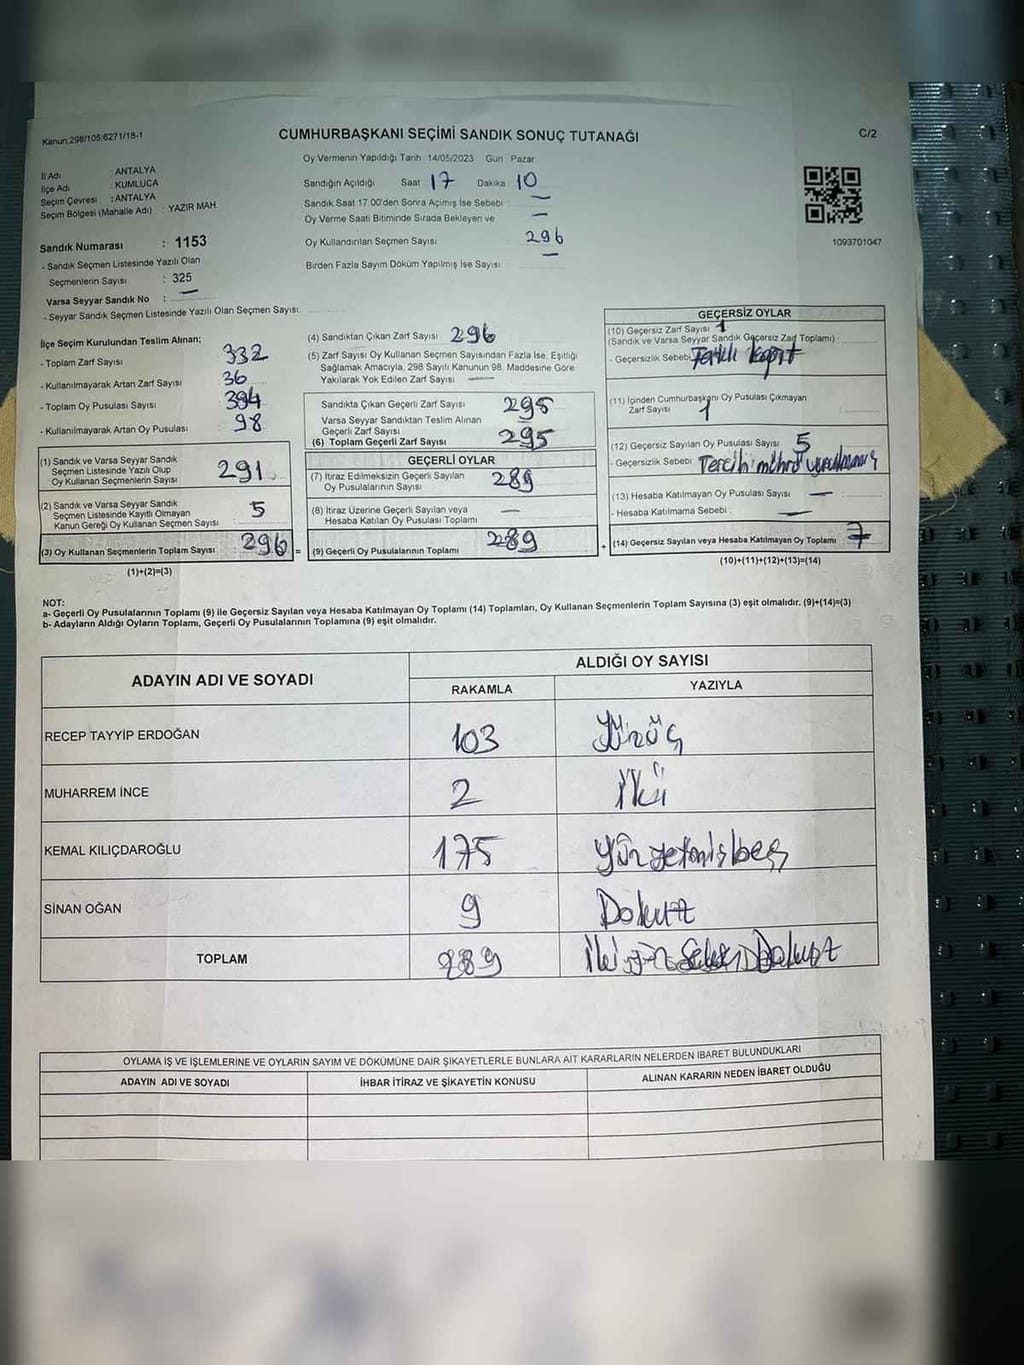 Kanun:298/105;6271/18-1
CUMHURBAŞKANI SEÇİMİ SANDIK SONUÇ TUTANAĞI
C/2
Oy Vermenin Yapıldığı Tarih 14/05/2023 Gün Pazar
İl Adı : ANTALYA
İlçe Adı : KUMLUCA
Seçim Çevresi : ANTALYA
Seçim Bölgesi (Mahalle Adı) : YAZIR MAH.
Sandığın Açıldığı Saat 17 Dakika 10
Sandık Saat 17.00'den Sonra Açımış İse Sebebi : —
Oy Verme Saati Bitiminde Sırada Bekleyen ve : —
Oy Kullandırılan Seçmen Sayısı : 296
Birden Fazla Sayım Döküm Yapılmış İse Sayısı : —
1093701047
Sandık Numarası : 1153
- Sandık Seçmen Listesinde Yazılı Olan
Seçmenlerin Sayısı : 325
Varsa Seyyar Sandık No : —
- Seyyar Sandık Seçmen Listesinde Yazılı Olan Seçmen Sayısı:
İlçe Seçim Kurulundan Teslim Alınan;
- Toplam Zarf Sayısı : 332
- Kullanılmayarak Artan Zarf Sayısı : 36
- Toplam Oy Pusulası Sayısı : 394
- Kullanılmayarak Artan Oy Pusulası : 98
(1) Sandık ve Varsa Seyyar Sandık
Seçmen Listesinde Yazılı Olup
Oy Kullanan Seçmenlerin Sayısı : 291
(2) Sandık ve Varsa Seyyar Sandık
Seçmen Listesinde Kayıtlı Olmayan
Kanun Gereği Oy Kullanan Seçmen Sayısı : 5
(3) Oy Kullanan Seçmenlerin Toplam Sayısı : 296 =
(1)+(2)=(3)
(4) Sandıktan Çıkan Zarf Sayısı : 296
(5) Zarf Sayısı Oy Kullanan Seçmen Sayısından Fazla İse, Eşitliği
Sağlamak Amacıyla, 298 Sayılı Kanunun 98. Maddesine Göre
Yakılarak Yok Edilen Zarf Sayısı : —
Sandıkta Çıkan Geçerli Zarf Sayısı : 295
Varsa Seyyar Sandıktan Teslim Alınan
Geçerli Zarf Sayısı : —
(6) Toplam Geçerli Zarf Sayısı : 295
GEÇERLİ OYLAR
(7) İtiraz Edilmeksizin Geçerli Sayılan
Oy Pusulalarının Sayısı : 289
(8) İtiraz Üzerine Geçerli Sayılan veya
Hesaba Katılan Oy Pusulası Toplamı : —
(9) Geçerli Oy Pusulalarının Toplamı : 289 +
GEÇERSİZ OYLAR
(10) Geçersiz Zarf Sayısı : 1
(Sandık ve Varsa Seyyar Sandık Geçersiz Zarf Toplamı) :
- Geçersizlik Sebebi: Farklı
(11) İçinden Cumhurbaşkanı Oy Pusulası Çıkmayan
Zarf Sayısı : 1
(12) Geçersiz Sayılan Oy Pusulası Sayısı : 5
- Geçersizlik Sebebi : Tercih mührü vurulmamış
(13) Hesaba Katılmayan Oy Pusulası Sayısı : —
- Hesaba Katılmama Sebebi : —
(14) Geçersiz Sayılan veya Hesaba Katılmayan Oy Toplamı : 7
(10)+(11)+(12)+(13)=(14)
NOT:
a- Geçerli Oy Pusulalarının Toplamı (9) ile Geçersiz Sayılan veya Hesaba Katılmayan Oy Toplamı (14) Toplamları, Oy Kullanan Seçmenlerin Toplam Sayısına (3) eşit olmalıdır. (9)+(14)=(3)
b- Adayların Aldığı Oyların Toplamı, Geçerli Oy Pusulalarının Toplamına (9) eşit olmalıdır.
ADAYIN ADI VE SOYADI
ALDIĞI OY SAYISI
RAKAMLA YAZIYLA
RECEP TAYYİP ERDOĞAN 103 Yüzüç
MUHARREM İNCE 2 İki
KEMAL KILIÇDAROĞLU 175 Yüzyetmişbeş
SİNAN OĞAN 9 Dokuz
TOPLAM 289 İkiyüzSeksenDokuz
OYLAMA İŞ VE İŞLEMLERİNE VE OYLARIN SAYIM VE DÖKÜMÜNE DAİR ŞİKAYETLERLE BUNLARA AİT KARARLARIN NELERDEN İBARET BULUNDUKLARI
ADAYIN ADI VE SOYADI İHBAR İTİRAZ VE ŞİKAYETİN KONUSU ALINAN KARARIN NEDEN İBARET OLDUĞU